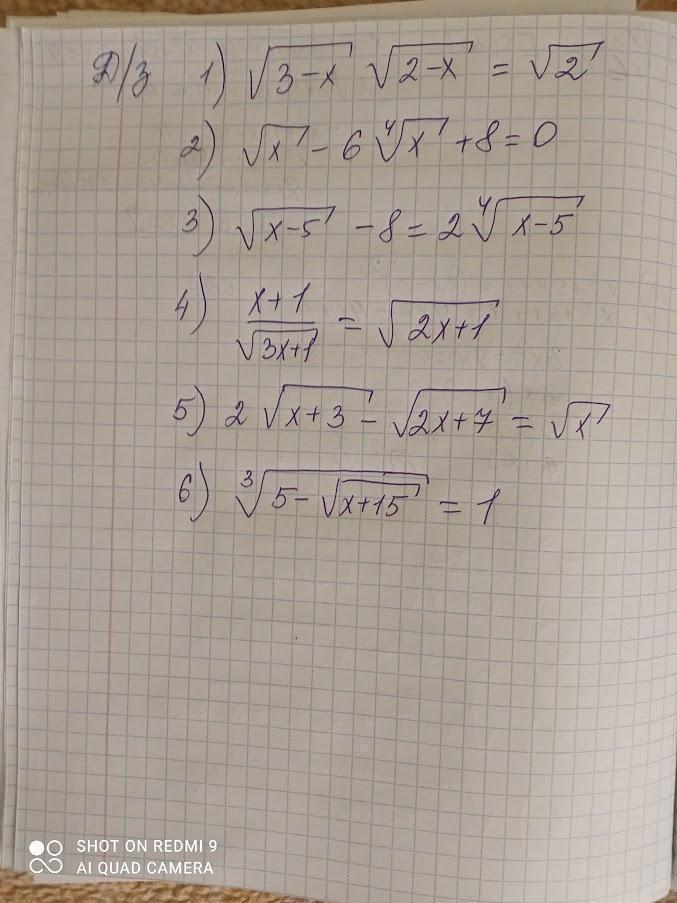 Д/з 1) √(3-x) √(2-x) = √2
2) √x - 6 ⁴√x + 8 = 0
3) √(x-5) - 8 = 2 ⁴√(x-5)
4) (x+1)/√(3x+1) = √(2x+1)
5) 2 √(x+3) - √(2x+7) = √x
6) ³√(5-√(x+15)) = 1
SHOT ON REDMI 9
AI QUAD CAMERA